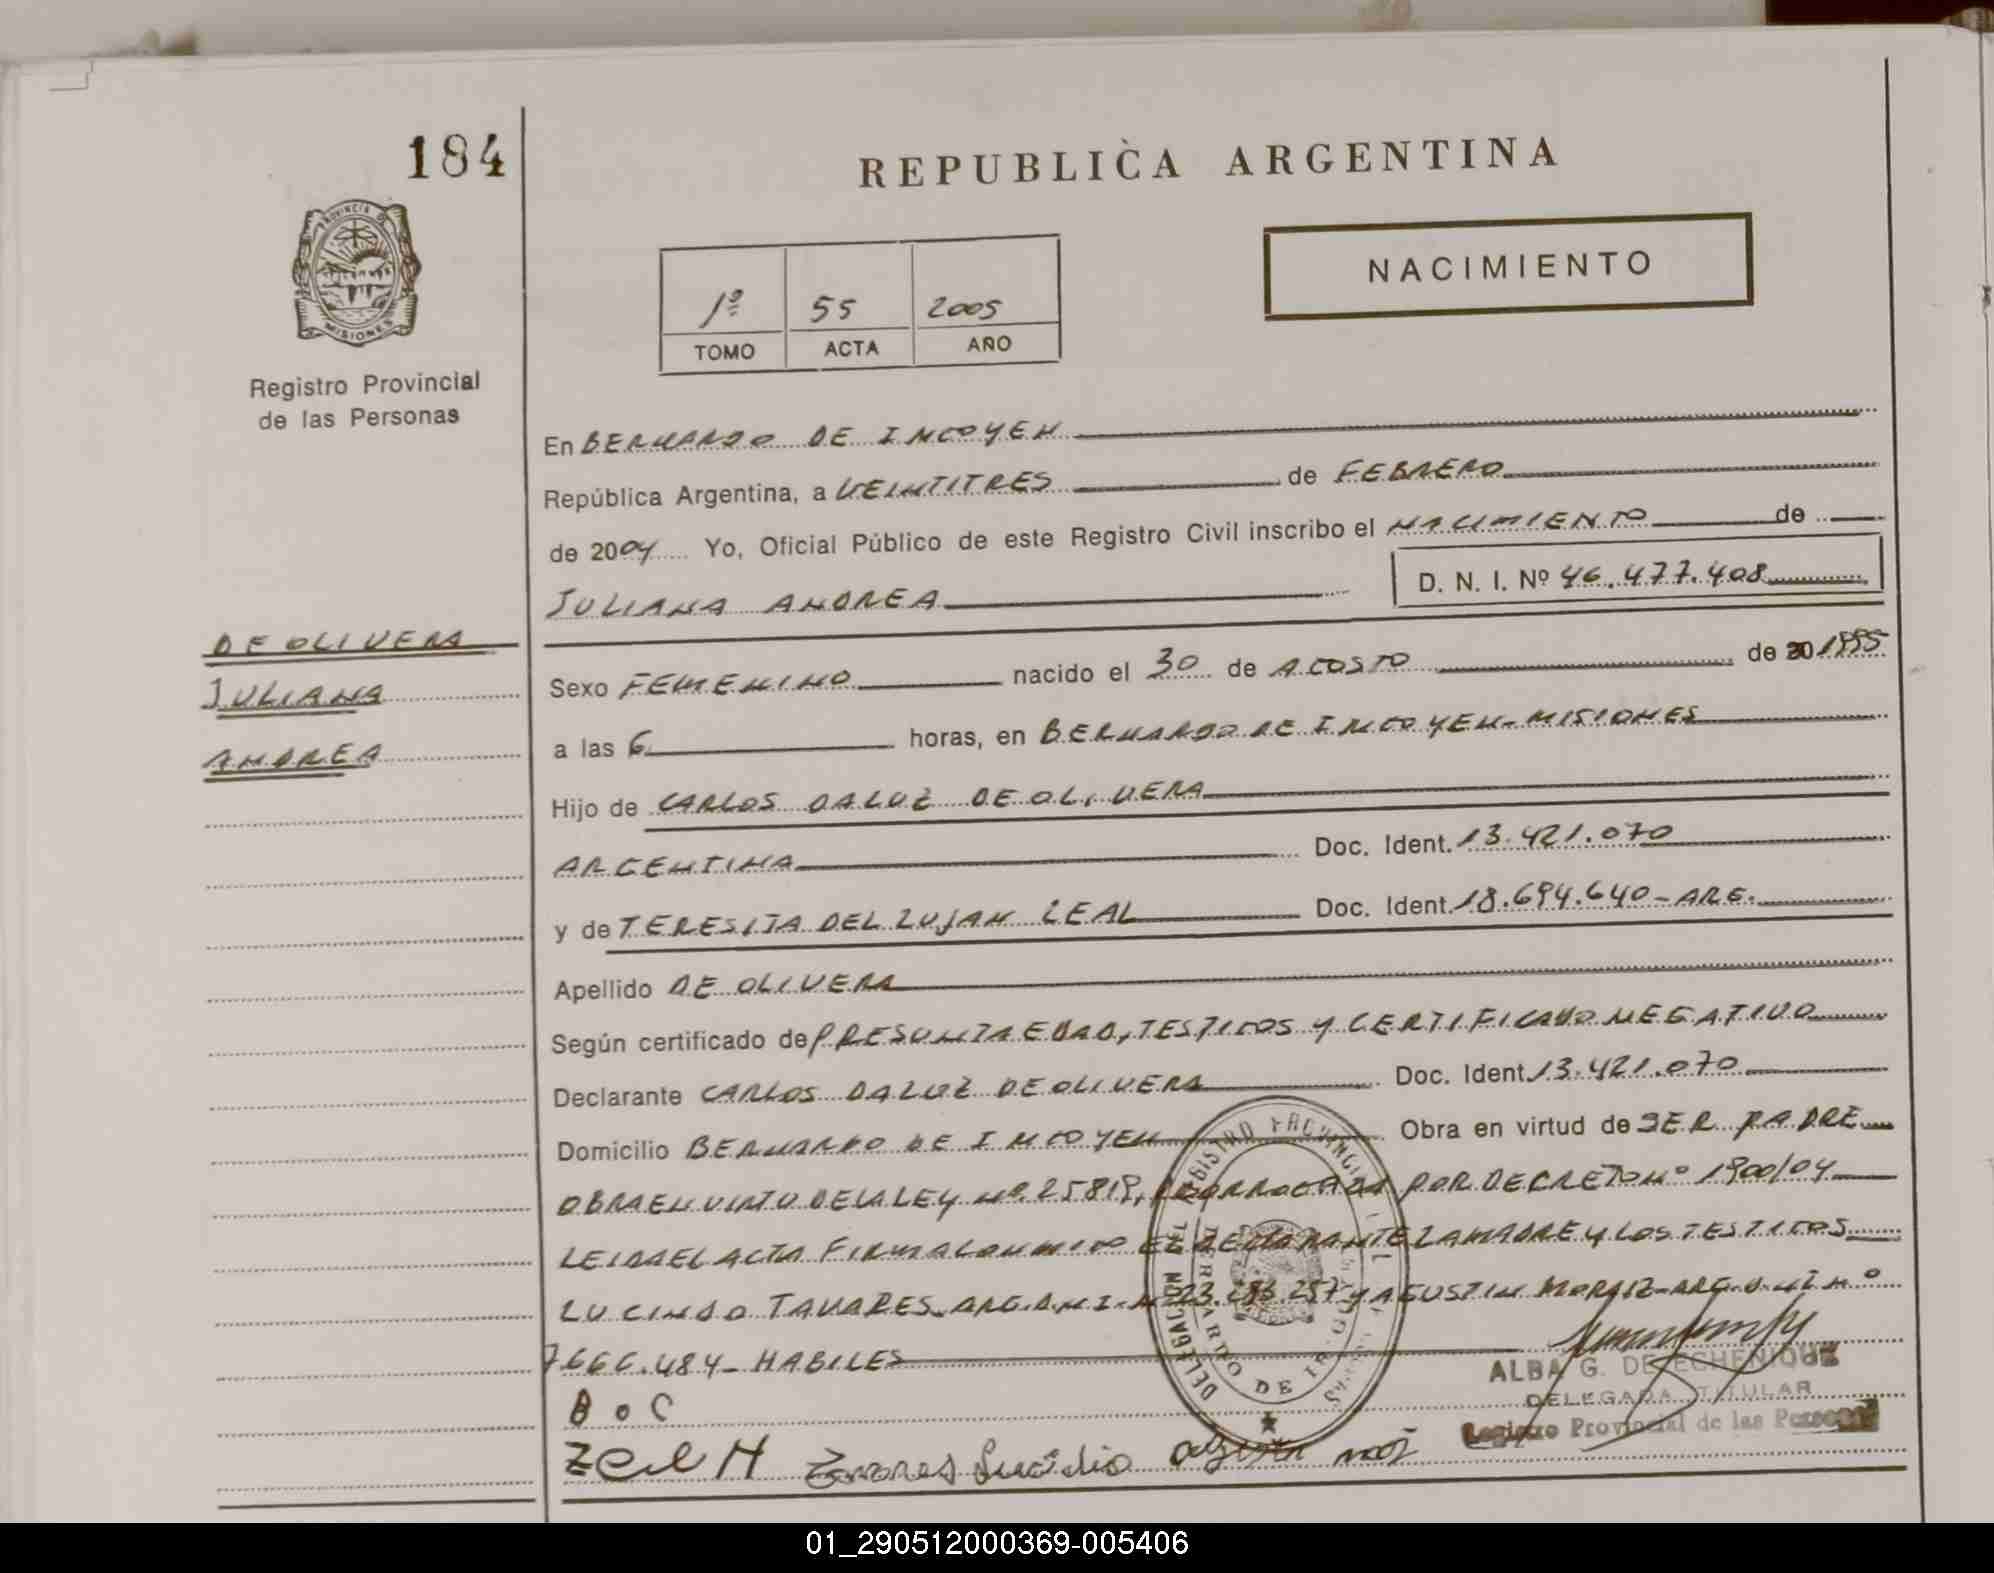 184
REPUBLICA ARGENTINA
PROVINCIA DE MISIONES
NACIMIENTO
1º 55 2005
TOMO ACTA AÑO
Registro Provincial
de las Personas
En BERNARDO DE IRIGOYEN
República Argentina, a VEINTITRES de FEBRERO
de 2004 Yo, Oficial Público de este Registro Civil inscribo el NACIMIENTO de
JULIANA ANDREA D. N. I. Nº 46.477.408
DE OLIVERA
JULIANA
ANDREA
Sexo FEMENINO nacido el 30 de AGOSTO de 20 1995
a las 6 horas, en BERNARDO DE IRIGOYEN-MISIONES
Hijo de CARLOS DALUZ DE OLIVERA
ARGENTINA Doc. Ident. 13.421.070
y de TERESITA DEL LUJAN LEAL Doc. Ident. 18.694.640-ARG.
Apellido DE OLIVERA
Según certificado de PRESUNTA EDAD, TESTIGOS Y CERTIFICADO NEGATIVO
Declarante CARLOS DALUZ DE OLIVERA Doc. Ident. 13.421.070
Domicilio BERNARDO DE IRIGOYEN Obra en virtud de SER PADRE
OBRA EN VIRTU DE LA LEY Nº 25819, PRORROGADA POR DECRETO Nº 1900/04
LEIDA EL ACTA FIRMA CONMIGO EL DECLARANTE LA MADRE Y LOS TESTIGOS
LUCINDO TAVARES ARG. D.N.I. Nº Y AGUSTIN ARG. Nº
7.666.484- HABILES
ALBA G. DE ECHENIQUE
DELEGADA TITULAR
Registro Provincial de las Personas
REGISTRO PROVINCIAL
BERNARDO DE IRIGOYEN
01_290512000369-005406